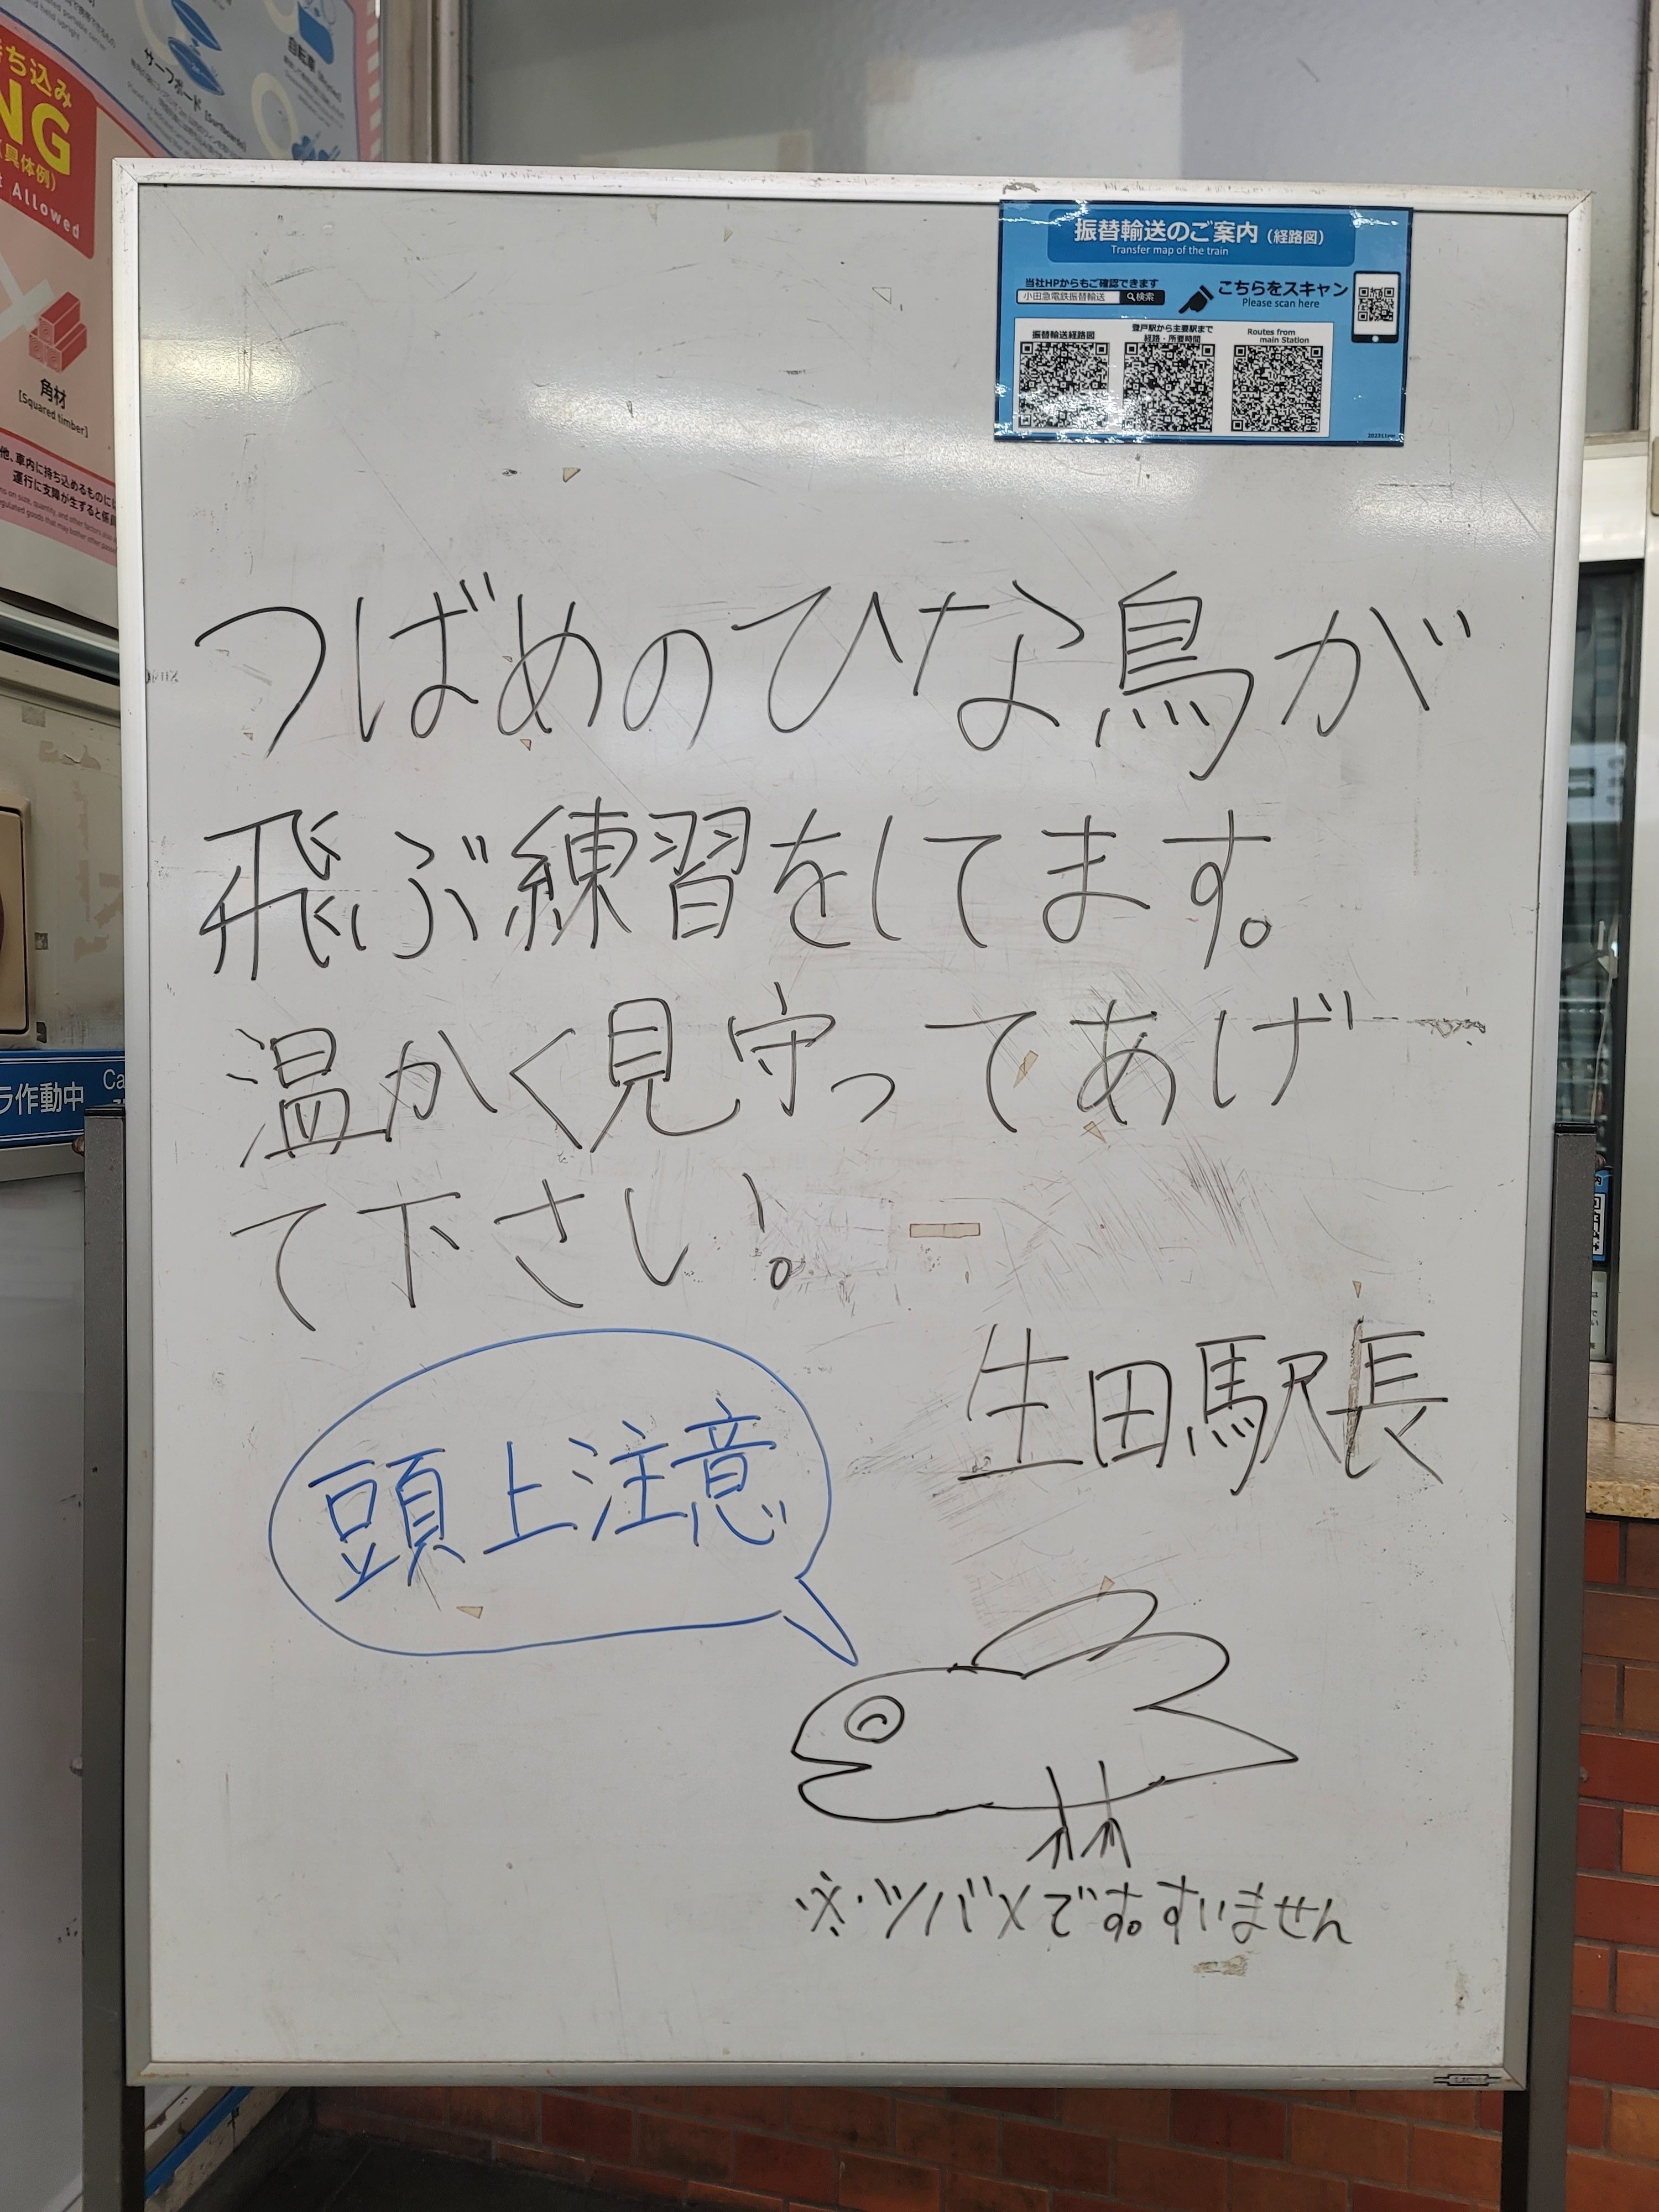 持ち込み
NG
具体例)
Allowed
サーフボード [Surfboards]
自転車
角材
[Squared timber]
運行に支障が生ずると係員
振替輸送のご案内（経路図）
Transfer map of the train
当社HPからもご確認できます
小田急電鉄振替輸送 検索
こちらをスキャン
Please scan here
振替輸送経路図
登戸駅から主要駅まで
経路・所要時間
Routes from
main Station
つばめのひな鳥が
飛ぶ練習をしてます。
温かく見守ってあげ
て下さい！
生田駅長
頭上注意
※・ツバメです。すいません
ラ作動中 Ca